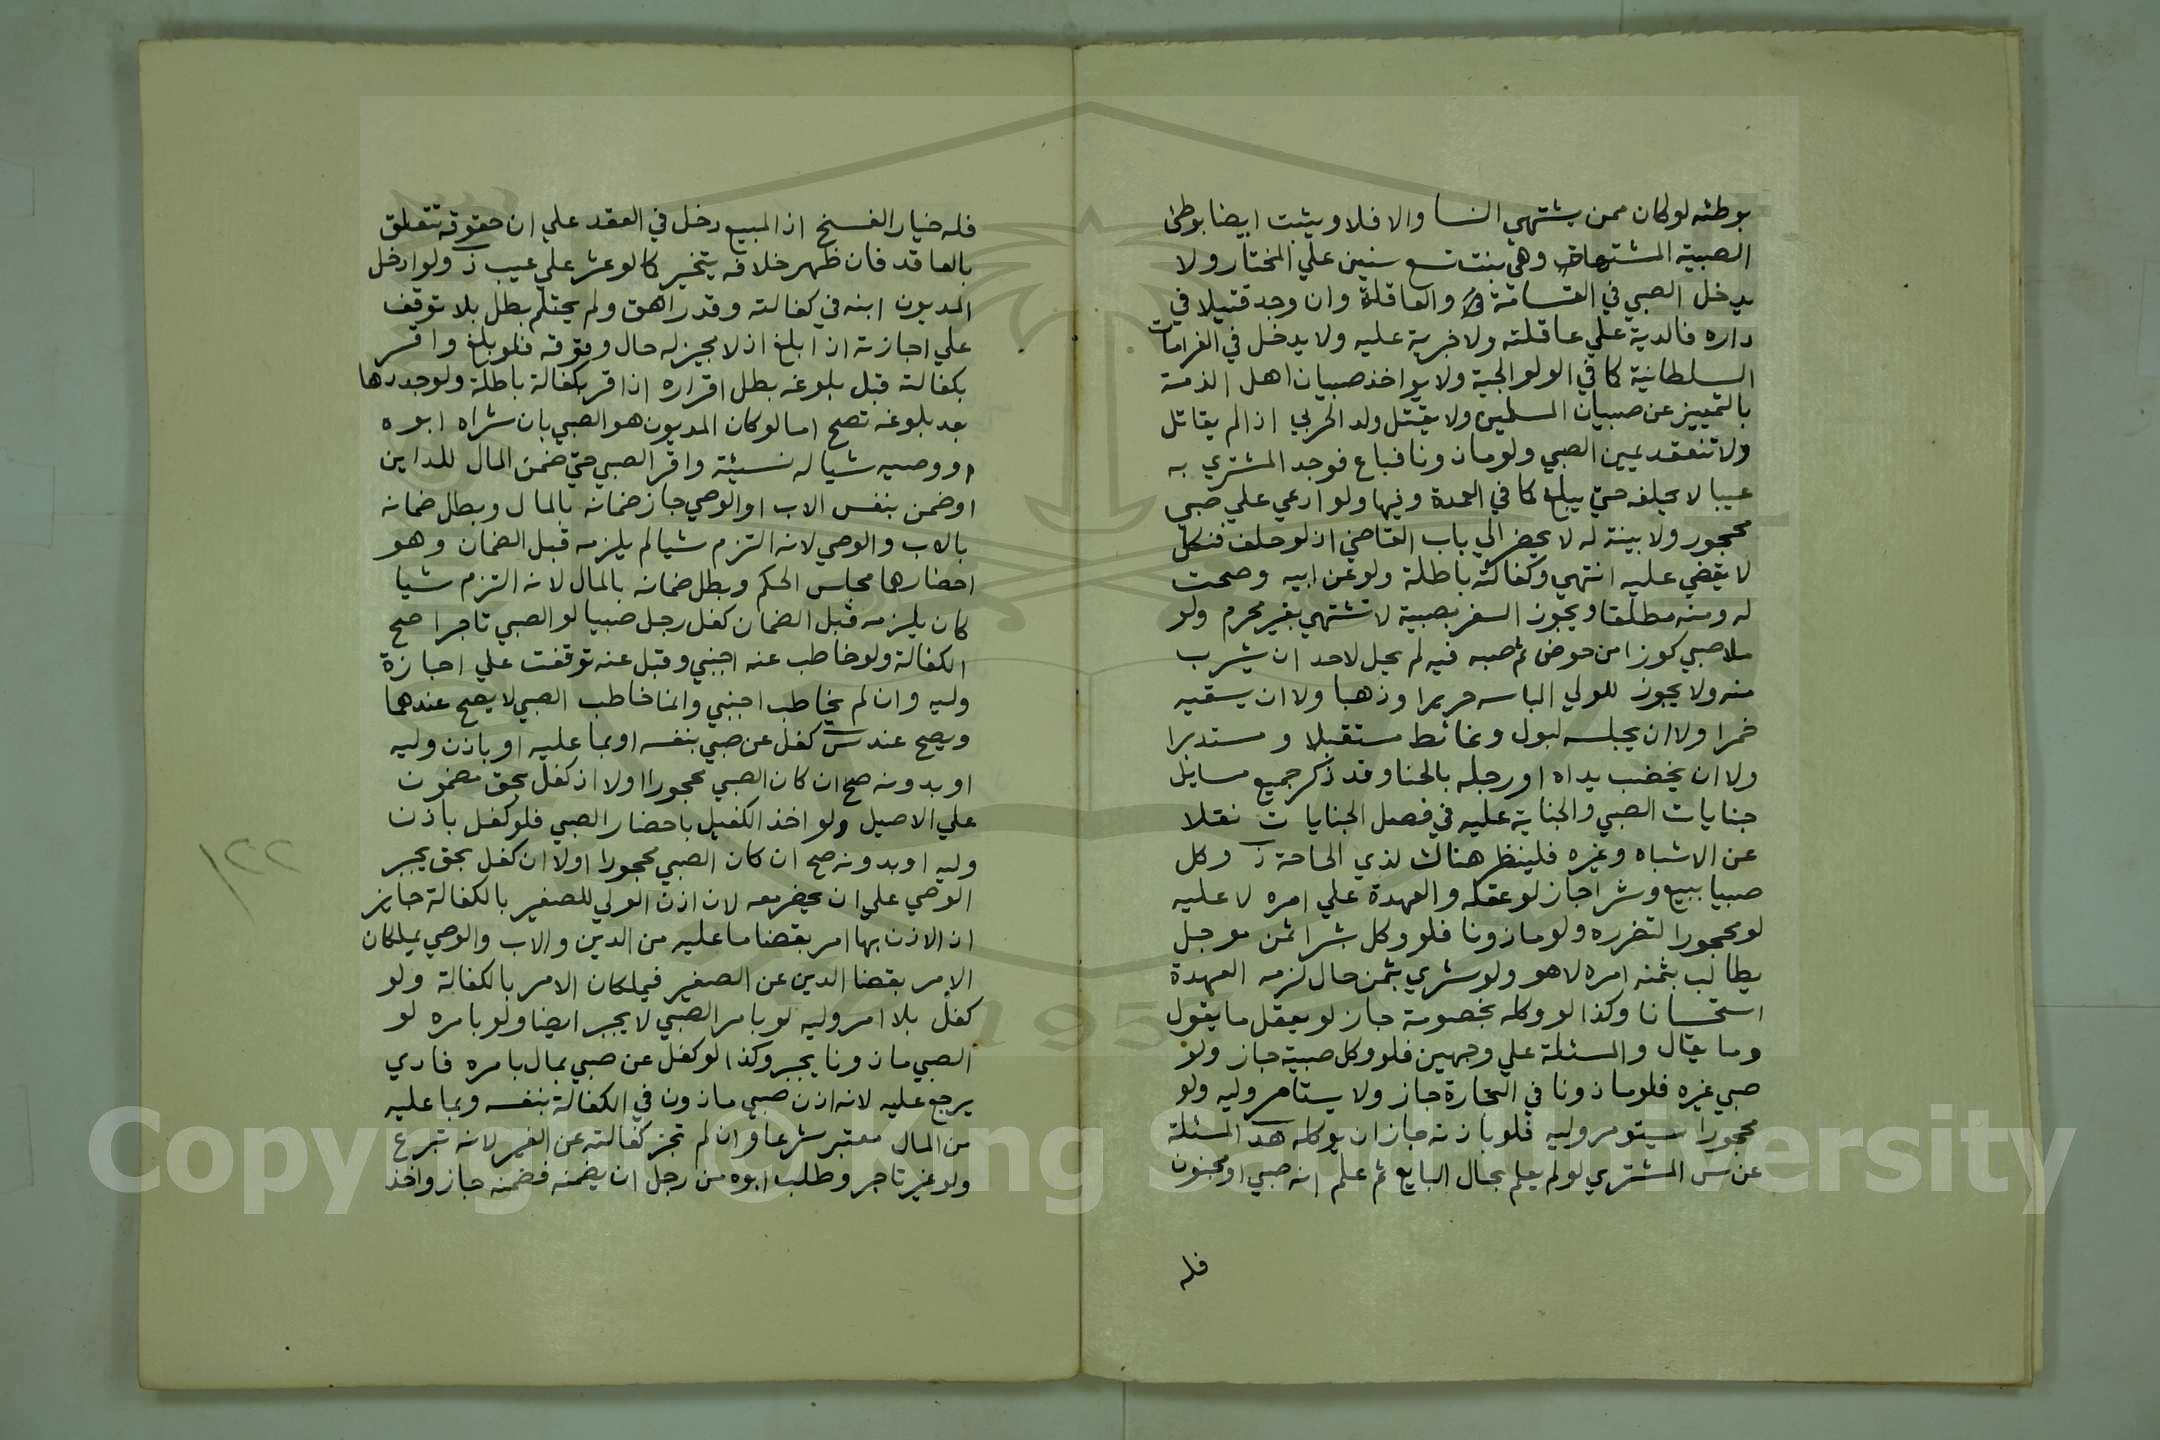 بوطئه لو كان ممن يشتهي النسا والا فلا ويثبت ايضا بوطئ
الصبية المشتهاة وهي بنت تسع سنين علي المختار ولا
يدخل الصبي في القسامة والعاقلة وان وجد قتيلا في
داره فالدية علي عاقلته ولا جزية عليه ولا يدخل في الغرامات
السلطانية كما في الولوالجية ولا يواخذ صبيان اهل الذمة
بالتمييز عن صبيان المسلمين ولا يقتل ولد الحربي اذا لم يقاتل
ولا تنعقد يمين الصبي ولو ماذونا فباع فوجد المشتري به
عيبا لا يحلفه حتي يبلغ كما في العمدة وفيها ولو ادعي علي صبي
محجور ولا بينة له لا يحضر الي باب القاضي اذ لو حلف فنكل
لا يقضي عليه انتهي وكفالته باطلة ولو عن ابيه وصحت
له ومنه مطلقا ويجوز السفر بصبية لا تشتهي بغير محرم ولو
ملا صبي كوزا من حوض ثم صبه فيه لم يحل لاحد ان يشرب
منه ولا يجوز للولي الباسه حريرا وذهبا ولا ان يسقيه
خمرا ولا ان يجلسه لبول وغائط مستقبلا ومستدبرا
ولا ان يخضب يداه او رجله بالحنا وقد ذكر جميع مسايل
جنايات الصبي والجناية عليه في فصل الجنايات نقلا
عن الاشباه وغيره فلينظر هناك لذي الحاحة ز وكل
صبيا ببيع وشرا جاز لو عقله والعهدة علي امره لا عليه
لو محجورا لتضرره ولو ماذونا فلو وكل بشرا ثمن موجل
يطالب بثمنه امره لا هو ولو شري بثمن حال لزمه العهدة
استحسانا وكذا لو وكله بخصومة جاز لو يعقل ما يقول
وما يقال والمسئلة علي وجهين فلو وكل صبيه جاز ولو
صبي غيره فلو ماذونا في التجارة جاز ولا يستامر وليه ولو
محجورا يستومر وليه فلو باذنه جاز ان يوكله هد المسئلة
عن س المشتري لو لم يعلم بحال البايع ثم علم انه صبي او مجنون
فله
فله خيار الفسخ اذ المبيع دخل في العقد علي ان حقوقه تتعلق
بالعاقد فان ظهر خلافه يتخير كما لو عثر علي عيب ز ولو ادخل
المديون ابنه في كفالته وقد راهق ولم يحتلم بطل بلا توقف
علي اجازته اذا بلغ اذ لا مجيز له حال وقوفه فلو بلغ واقر
بكفالته قبل بلوغه بطل اقراره اذ اقر بكفالة باطلة ولو جددها
بعد بلوغه تصح اما لو كان المديون هو الصبي بان شراه ابوه
او وصيه شيا له نسيئة واقر الصبي حتي ضمن المال للداين
او ضمن بنفس الاب او الوصي جاز ضمانه بالمال وبطل ضمانه
بالاب والوصي لانه التزم شيا لم يلزمه قبل الضمان وهو
احضارهما مجلس الحكم وبطل ضمانه بالمال لانه التزم شيا
كان يلزمه قبل الضمان كفل رجل صبيا لو الصبي تاجرا صح
الكفالة ولو خاطب عنه اجنبي وقبل عنه توقفت علي اجازة
وليه وان لم يخاطب اجنبي وانما خاطب الصبي لا يصح عندهما
ويصح عند س كفل عن صبي بنفسه او بما عليه او باذن وليه
او بدونه صح ان كان الصبي محجورا اولا اذ كفل بحق مضمون
علي الاصيل ولو اخذ الكفيل باحضار الصبي فلو كفل باذن
وليه او بدونه صح ان كان الصبي محجورا اولا ان كفل بحق يجبر
الوصي علي ان يحضر معه لان اذن الولي للصغير بالكفالة جايز
اذ الاذن بها امر بقضا ما عليه من الدين والاب والوصي يملكان
الامر بقضا الدين عن الصغير فيملكان الامر بالكفالة ولو
كفل بلا امر وليه لو بامر الصبي لا يجبر ايضا ولو بامره لو
الصبي ماذونا يجبر وكذا لو كفل عن صبي بمال بامره فادي
يرجع عليه لانه اذن صبي ماذون في الكفالة بنفسه وبما عليه
من المال معتبر شرعا وان لم تجز كفالته عن الغير لانه تبرع
ولو غير تاجر وطلب ابوه من رجل ان يضمنه فضمنه جاز واخذ
١٢٢
Copyright © King Saud University
1957